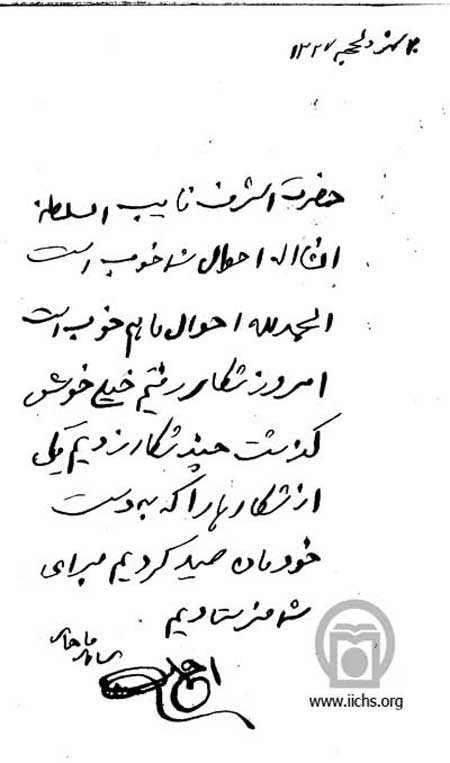 ذیحجه ۱۳۲۷
حضرت اشرف نایب السلطنه
انشاالله احوال شما خوب است
الحمدلله احوال ما هم خوب است
امروز شکار رفتیم خیلی خوش
گذشت چند شکار زدیم یکی
از شکارها را که به دست
خودمان صید کردیم برای
شما فرستادیم
احمد
www.iichs.org